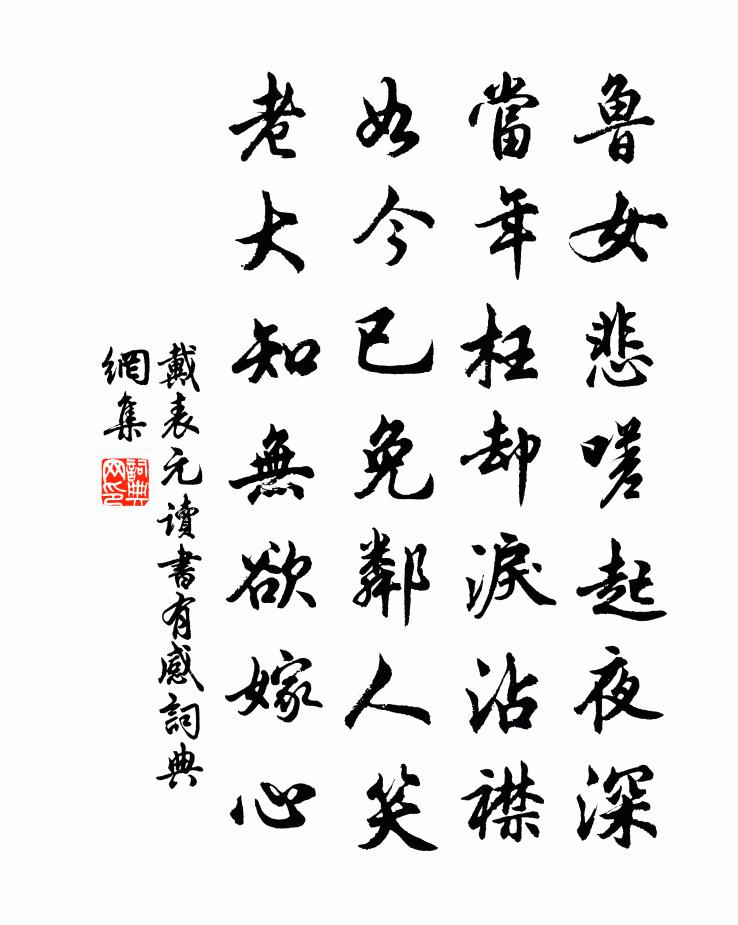 魯女悲嗟起夜深
當年枉却淚沾襟
如今已免鄰人笑
老大知無欲嫁心
戴表元讀書有感詞典
網集
詞典
网印